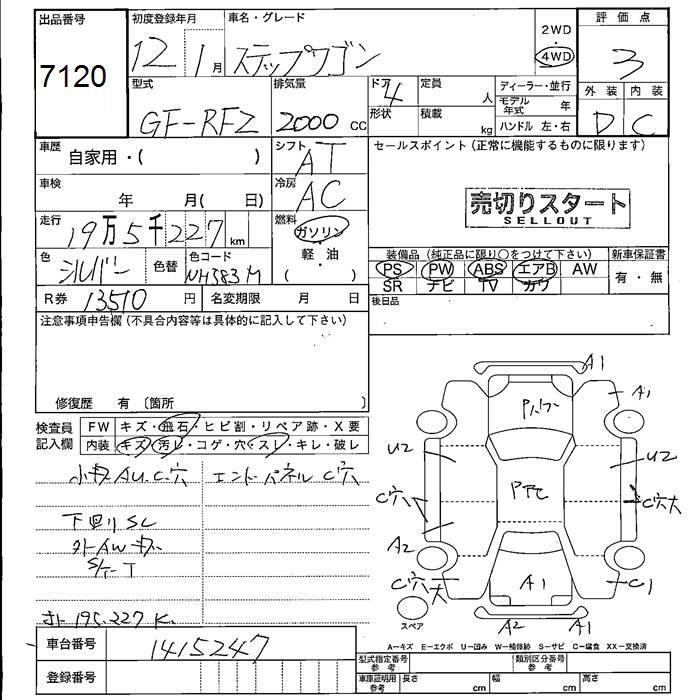 出品番号 初度登録年月 車名・グレード 2WD 評価点
7120 12 1月 ステップワゴン 4WD 3
型式 排気量 ドア 4 定員 人 ディーラー・並行 外装 内装
GF-RFZ 2000 CC 形状 積載 kg モデル年式 年 D C
ハンドル 左・右
車歴 自家用・( ) シフト AT セールスポイント (正常に機能するものに限ります)
車検 年 月( 日) 冷房 AC 売切りスタート
SELLOUT
走行 19万5千227km 燃料 ガソリン
軽・油
( )
色 シルバー 色替 色コード NH583M 装備品 (純正品に限り○をつけて下さい) 新車保証書
PS PW ABS エアB AW 有・無
SR ナビ TV カワ
R券 13510 円 名変期限 月 日 後日品
注意事項申告欄 (不具合内容等は具体的に記入して下さい)
修復歴 有 〔箇所 〕
検査員記入欄 FW キズ・飛石・ヒビ割・リペア跡・X要
内装 キズ・汚レ・コゲ・穴・スレ・キレ・破レ
小キズAU.C.穴 エンドパネル C穴
下回りSC
外AWキズ
S/T-T
195.227K.
A1
A1
U2
U2
C穴
C穴大
A2
C穴大
A1
C1
スペア
A2 A1
A-キズ E-エクボ U-凹み W-補修跡 S-サビ C-腐食 XX-交換済
車台番号 1415247
登録番号
型式指定番号 参考 類別区分番号 参考
車庫証明用 参考 長さ cm 幅 cm 高さ cm